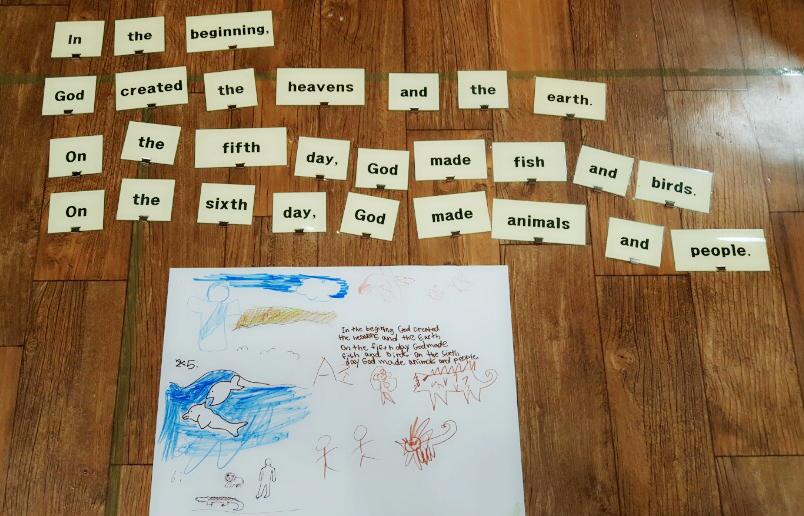 In the beginning,
God created the heavens and the earth.
On the fifth day, God made fish and birds.
On the sixth day, God made animals and people.
In the beginning God created
the heavens and the Earth
on the fifth day God made
fish and birds on the sixth
day God made animals and people
5:
6: